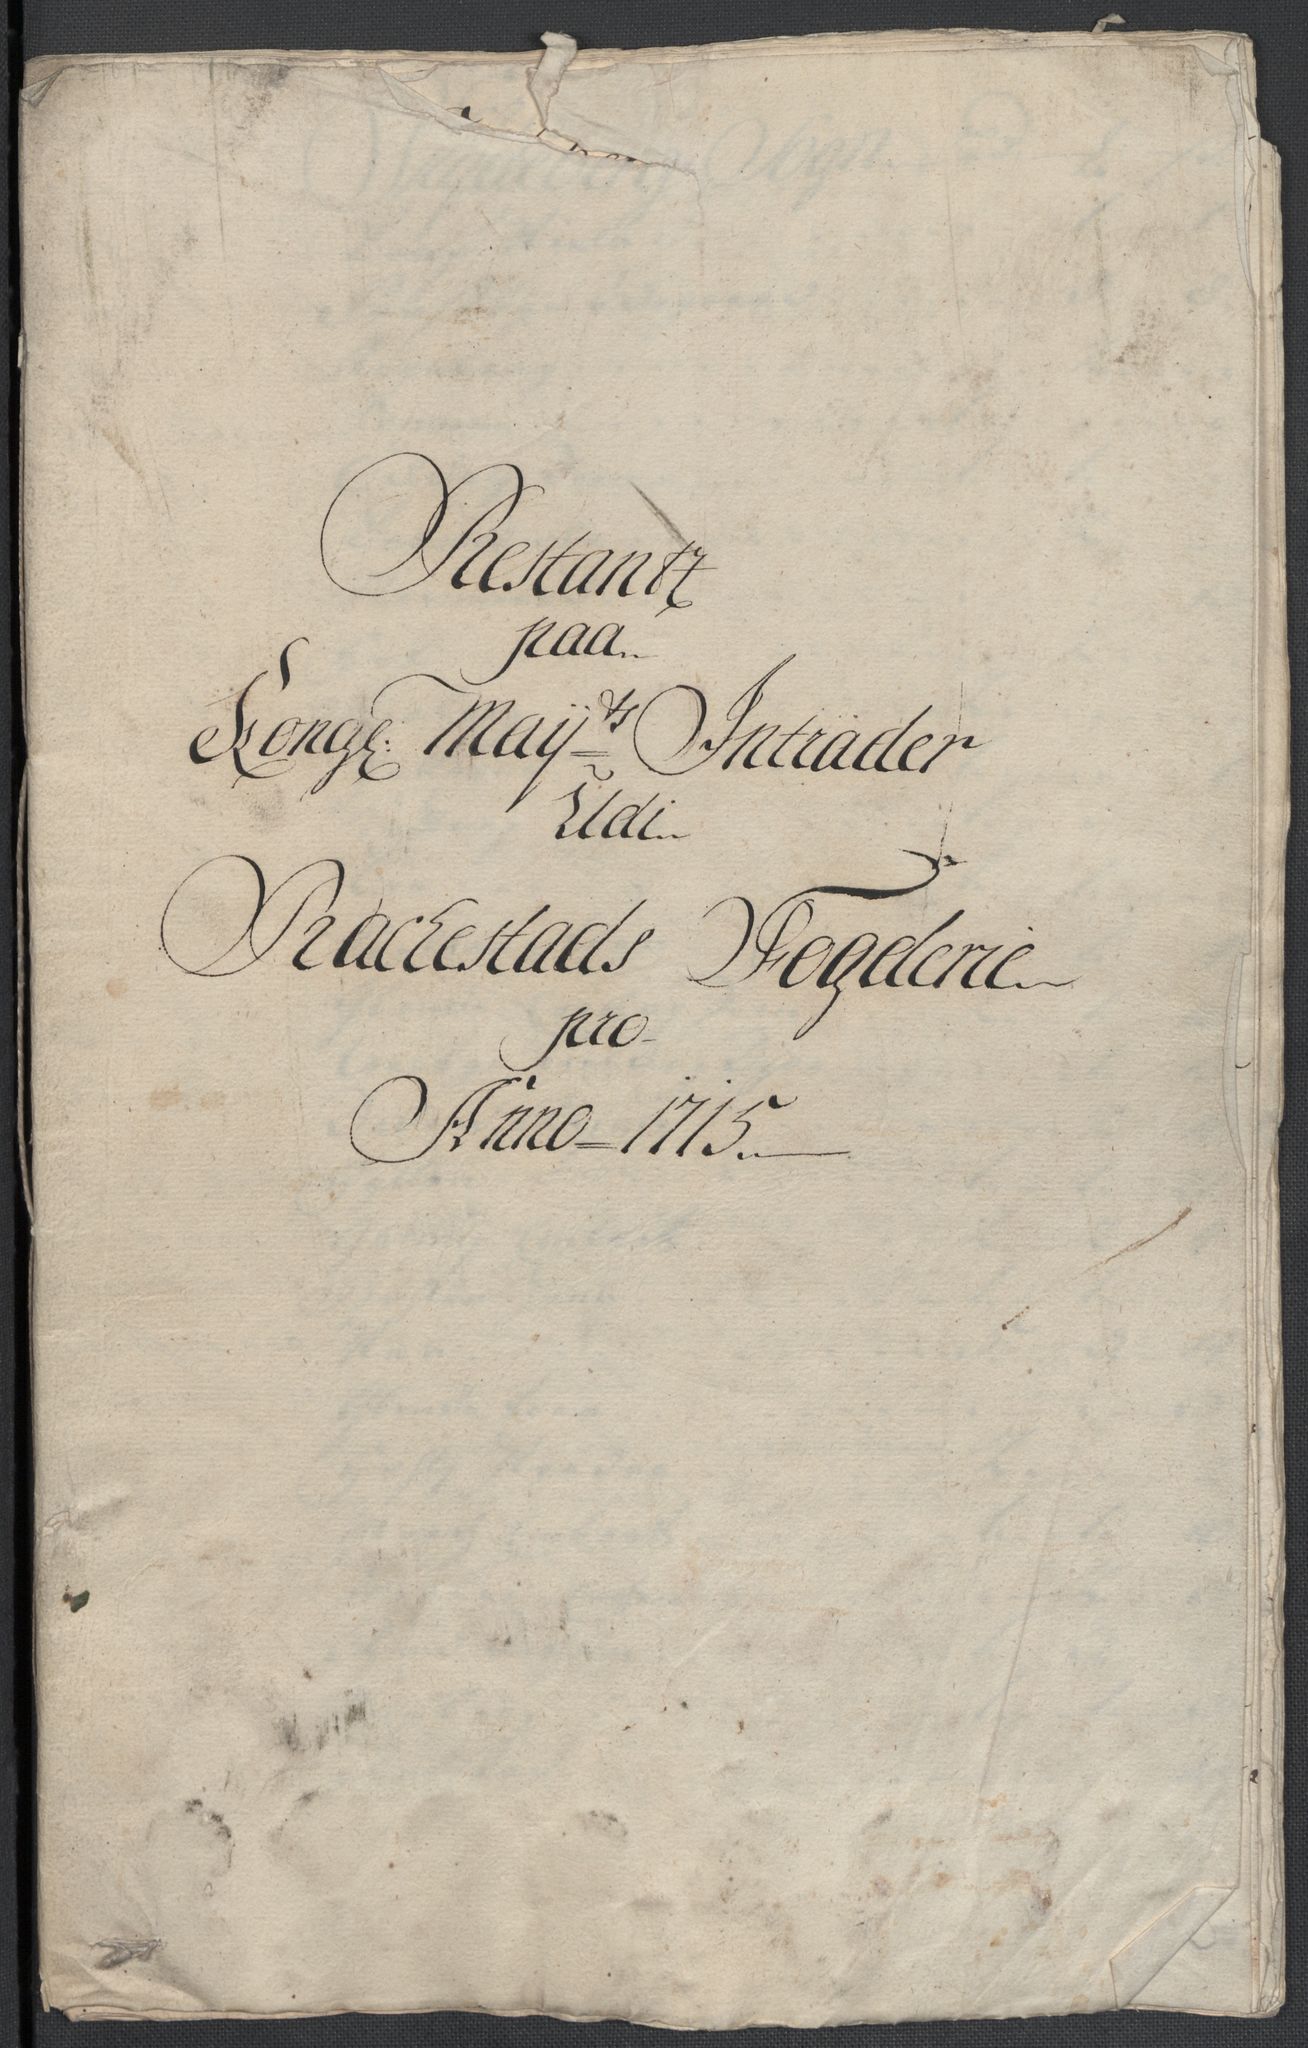 Restantz
paa
Konge: Maÿts Intrader
Udi
Rackestads Fogderie
pro
Anno 1715